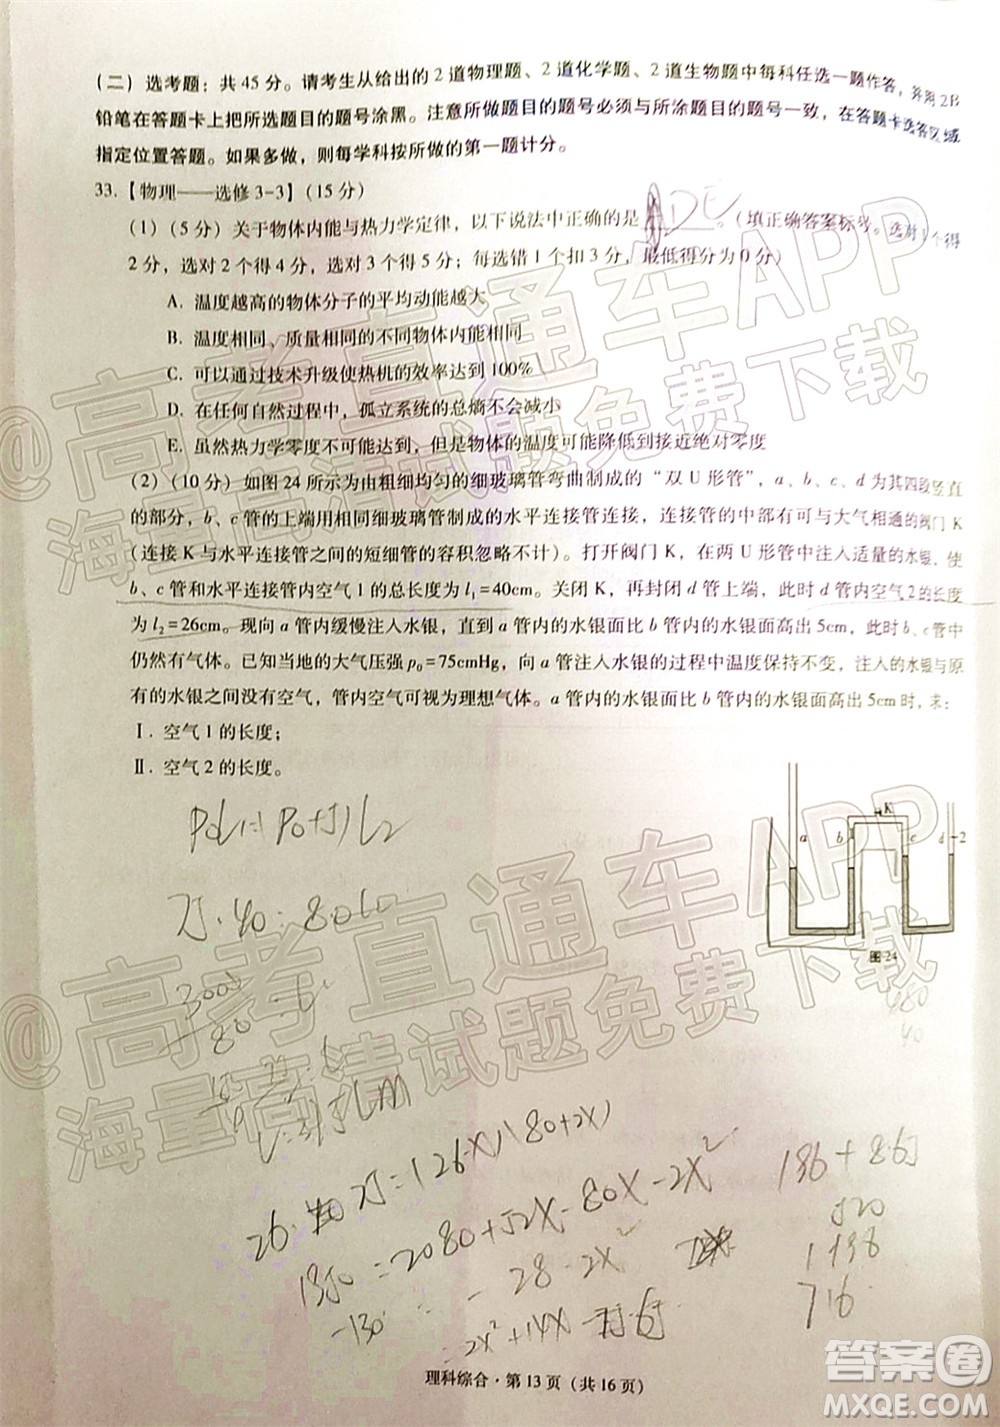 （二）选考题：共 45 分。请考生从给出的 2 道物理题、2 道化学题、2 道生物题中每科任选一题作答，并用2B
铅笔在答题卡上把所选题目的题号涂黑。注意所做题目的题号必须与所涂题目的题号一致，在答题卡选答区域
指定位置答题。如果多做，则每学科按所做的第一题计分。
33.【物理——选修 3-3】(15 分)
(1)（5 分）关于物体内能与热力学定律，以下说法中正确的是 ADE 。（填正确答案标号。选对1个得
2 分，选对 2 个得 4 分，选对 3 个得 5 分；每选错 1 个扣 3 分，最低得分为 0 分）
A. 温度越高的物体分子的平均动能越大
B. 温度相同、质量相同的不同物体内能相同
C. 可以通过技术升级使热机的效率达到 100%
D. 在任何自然过程中，孤立系统的总熵不会减小
E. 虽然热力学零度不可能达到，但是物体的温度可能降低到接近绝对零度
(2)（10 分）如图 24 所示为由粗细均匀的细玻璃管弯曲制成的“双 U 形管”，a、b、c、d 为其四段竖直
的部分，b、c 管的上端用相同细玻璃管制成的水平连接管连接，连接管的中部有可与大气相通的阀门 K
（连接 K 与水平连接管之间的短细管的容积忽略不计）。打开阀门 K，在两 U 形管中注入适量的水银，使
b、c 管和水平连接管内空气 1 的总长度为 l₁=40cm。关闭 K，再封闭 d 管上端，此时 d 管内空气2的长度
为 l₂=26cm。现向 a 管内缓慢注入水银，直到 a 管内的水银面比 b 管内的水银面高出 5cm，此时 b、c 管中
仍然有气体。已知当地的大气压强 p₀=75cmHg，向 a 管注入水银的过程中温度保持不变，注入的水银与原
有的水银之间没有空气，管内空气可视为理想气体。在 a 管内的水银面比 b 管内的水银面高出 5cm时，求：
Ⅰ. 空气 1 的长度；
Ⅱ. 空气 2 的长度。
K
a b c d 2
图 24
480
40
P0L1=(P0+5)L2
75·40=80L2
3000
80
26·75=(26-X)(80+2X)
1950=2080+52X-80X-2X²
-130 = -28-2X²
2X²+14X-65
186+865
520
1198
716
理科综合·第 13 页（共 16 页）
@高考直通车APP
海量高清试题免费下载
@高考直通车APP
海量高清试题免费下载
答案圈
MXQE.COM